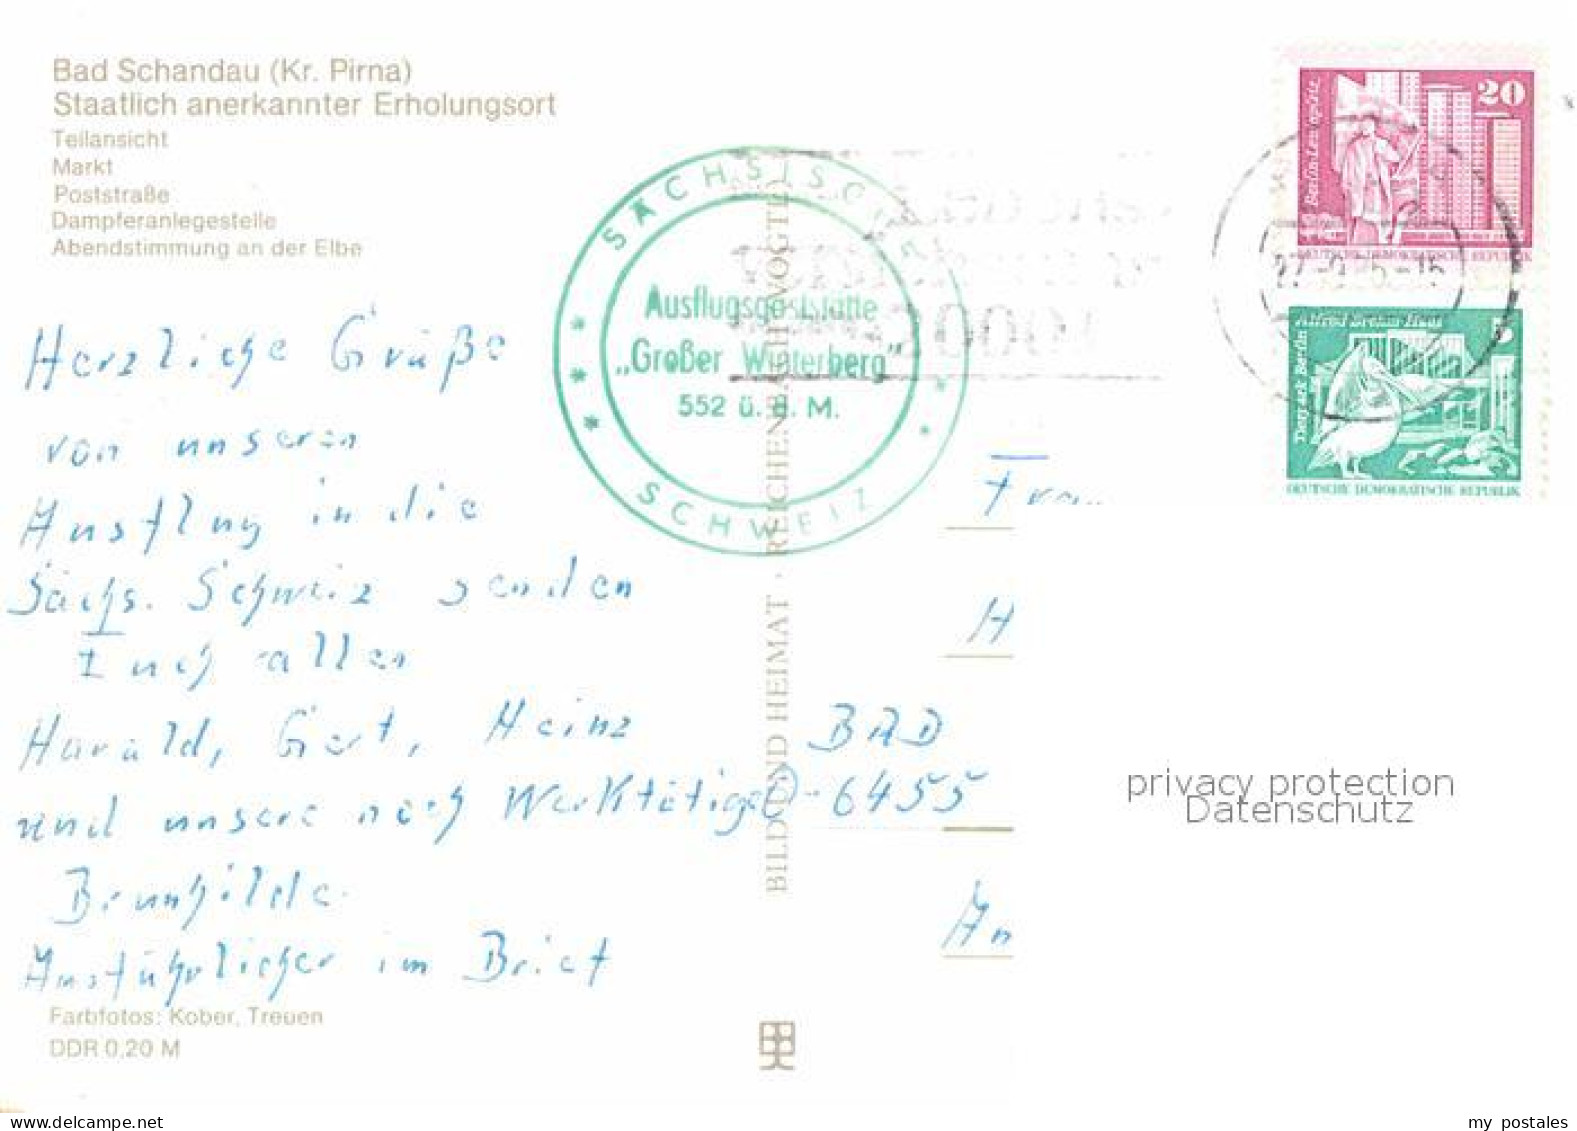 Bad Schandau (Kr. Pirna)
Staatlich anerkannter Erholungsort
Teilansicht
Markt
Poststraße
Dampferanlegestelle
Abendstimmung an der Elbe
SÄCHSISCHE
Ausflugsgaststätte
„Großer Winterberg"
552 ü. d. M.
SCHWEIZ
20
Berlin-Leninplatz
DEUTSCHE DEMOKRATISCHE REPUBLIK
Alfred-Brehm-Haus
Tierpark Berlin
5
DEUTSCHE DEMOKRATISCHE REPUBLIK
Herzliche Grüße
von unseren
Ausflug in die
Sächs. Schweiz senden
Euch allen
Harald, Gert, Heinz
und unsere noch Werktätige
Brunhilde.
Ausführlicher im Brief
Frau
H
BRD
6455
An
BILD UND HEIMAT · REICHENBACH (VOGTL)
Farbfotos: Kober, Treuen
DDR 0,20 M
privacy protection
Datenschutz
my postales